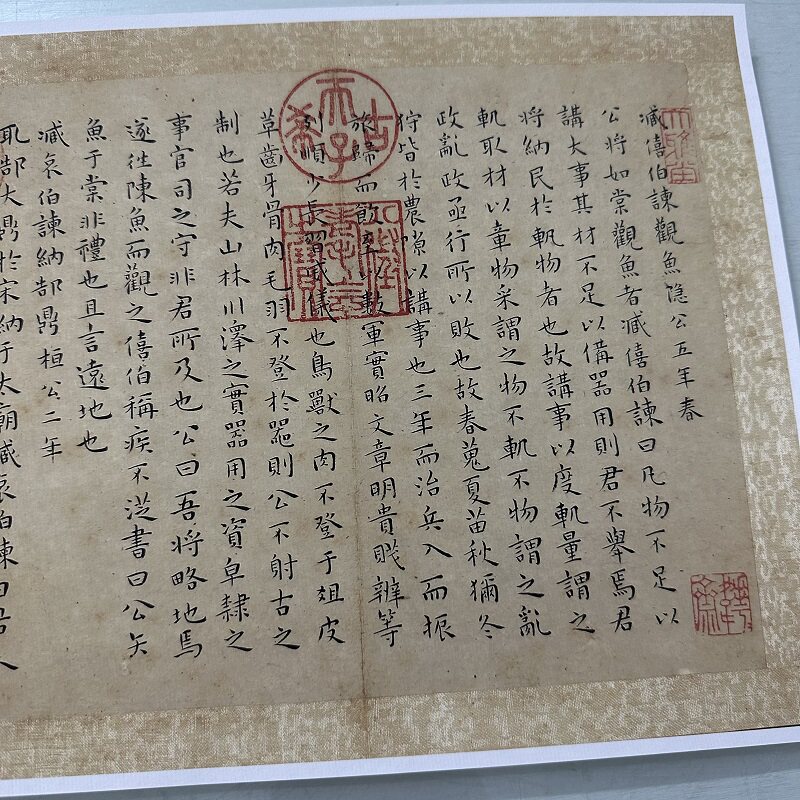 臧僖伯諫觀魚隱公五年春
公將如棠觀魚者臧僖伯諫曰凡物不足以
講大事其材不足以備器用則君不舉焉君
將納民於軌物者也故講事以度軌量謂之
軌取材以章物采謂之物不軌不物謂之亂
政亂政亟行所以敗也故春蒐夏苗秋獮冬
狩皆於農隙以講事也三年而治兵入而振
旅歸而飲至以數軍實昭文章明貴賤辨等
列順少長習威儀也鳥獸之肉不登于俎皮
革齒牙骨肉毛羽不登於器則公不射古之
制也若夫山林川澤之實器用之資皁隸之
事官司之守非君所及也公曰吾將略地焉
遂往陳魚而觀之僖伯稱疾不從書曰公矢
魚于棠非禮也且言遠地也
臧哀伯諫納郜鼎桓公二年
取郜大鼎於宋納于太廟臧哀伯諫曰君人
古希天子